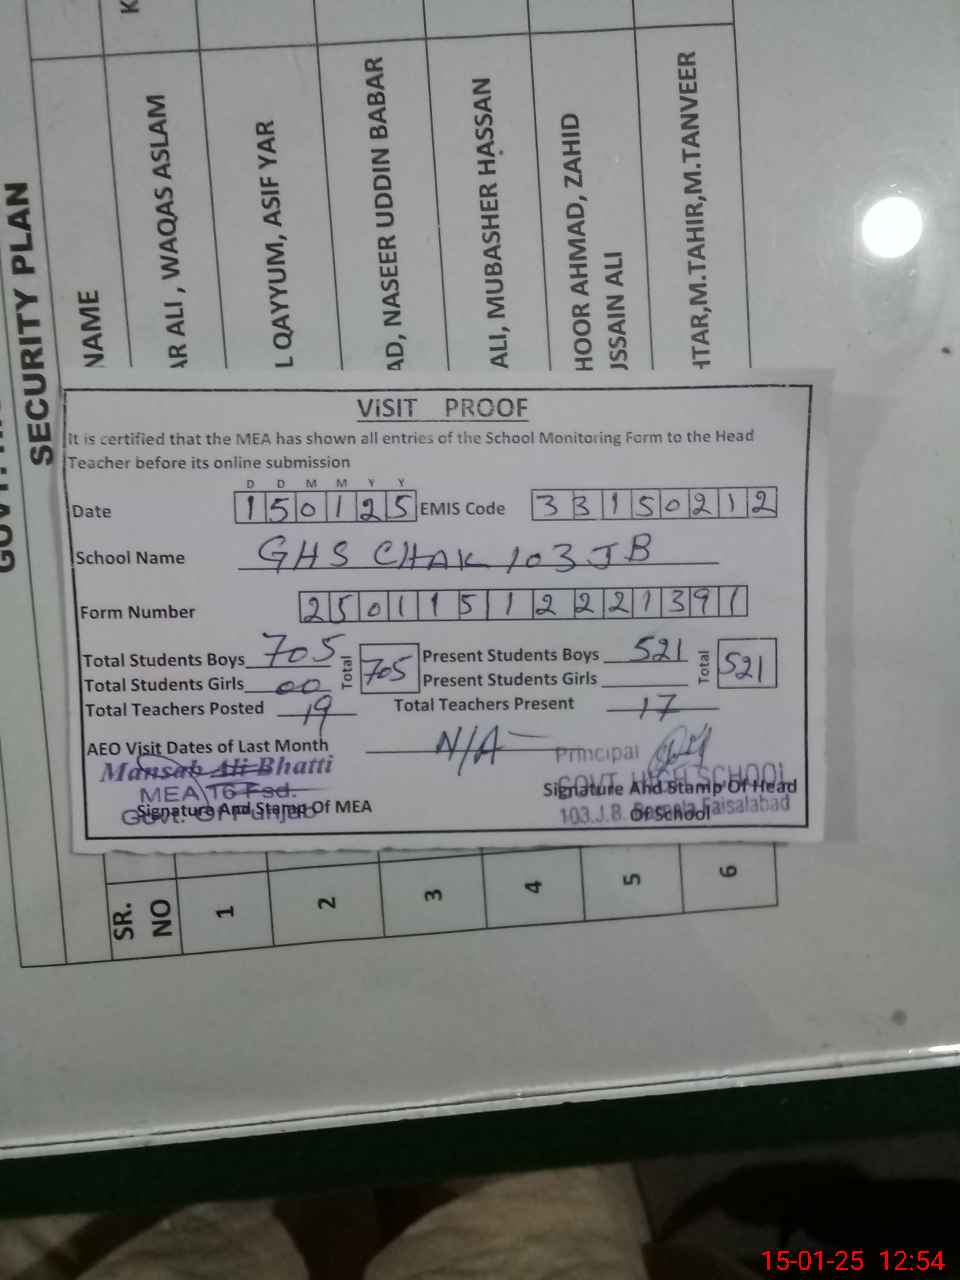 SECURITY PLAN
NAME
AR ALI , WAQAS ASLAM
L QAYYUM, ASIF YAR
AD, NASEER UDDIN BABAR
ALI, MUBASHER HASSAN
HOOR AHMAD, ZAHID
USSAIN ALI
HTAR,M.TAHIR,M.TANVEER
VISIT PROOF
It is certified that the MEA has shown all entries of the School Monitoring Form to the Head
Teacher before its online submission
D D M M Y Y
Date 150125 EMIS Code 33150212
School Name GHS CHAK 103 JB
Form Number 250115122221391
Total Students Boys 705 Total 705 Present Students Boys 521 Total 521
Total Students Girls 00 Present Students Girls
Total Teachers Posted 19 Total Teachers Present 17
AEO Visit Dates of Last Month N/A
Mansab Ali Bhatti
MEA 16 Fsd.
Govt. Of Punjab
Signature And Stamp Of MEA
Principal
GOVT. HIGH SCHOOL
103.J.B. Faisalabad
Signature And Stamp Of Head
Of School
SR.
NO
1
2
3
4
5
6
15-01-25 12:54